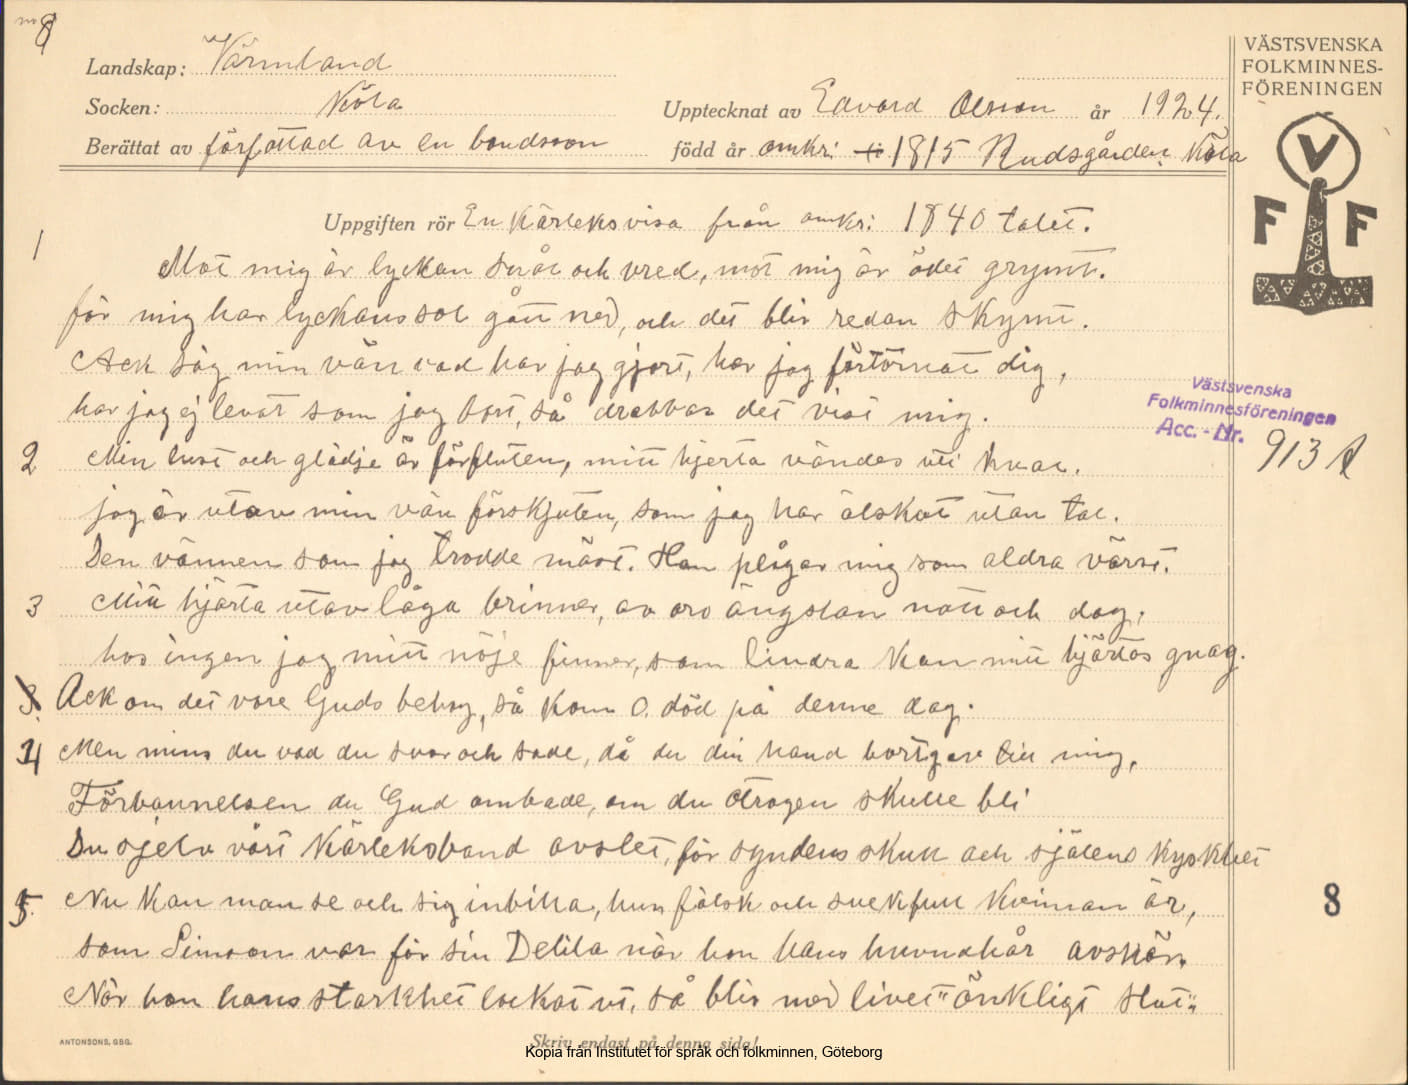 no 8
Landskap: Värmland
Socken: Köla
Upptecknat av Edvard Olsson år 1924.
Berättat av författad av en bondson född år omkr: 1815 Rudsgården. Köla
VÄSTSVENSKA
FOLKMINNES-
FÖRENINGEN
V
F F
Uppgiften rör En Kärleksvisa från omkr: 1840 talet.
1 Mot mig är lyckan svår och vred, mot mig är ödet grymt.
för mig har lyckans sol gått ned, och det blir redan skymt.
Ack säg min vän vad har jag gjort, har jag förtörnat dig,
har jag ej levat som jag bort, så drabbar det visst mig.
Västsvenska
Folkminnesföreningen
Acc. - Nr. 913
2 Min lust och glädje är förfluten, mitt hjerta vändes uti kval.
jag är utav min vän förskjuten, som jag har älskat utan tal.
Den vännen som jag trodde mäst. Han plågar mig som aldra värst.
3 Mitt hjärta utav låga brinner, av oro ängslan natt och dag,
hos ingen jag mitt nöje finner, som lindra kan mitt hjärtas gnag.
3. Ack om det vore Guds behag, så kom O. död på denne dag.
4 Men mins du vad du svor och sade, då du din hand bortgav till mig,
Förbannelsen du Gud ombade, om du otrogen skulle bli
Du sjelv vårt Kärleksband avslet, för syndens skull och själens kyskhet
5 Nu kan man se och sig inbilla, hur falsk och svekfull kvinnan är,
som Simson var för sin Delila när hon hans huvudhår avskär.
När hon hans starkhet lockat ut, så blir med livet "önkligt slut"
8
ANTONSONS, GBG.
Skriv endast på denna sida!
Kopia från Institutet för språk och folkminnen, Göteborg